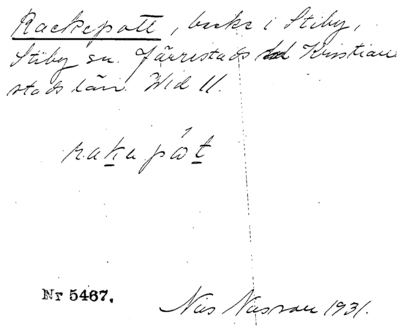 Rackepott, backe i Stiby,
Stiby sn. Järrestads hd Kristian
stads län. Wid 11.
rakapåt
Nr 5467.
Nils 1931.